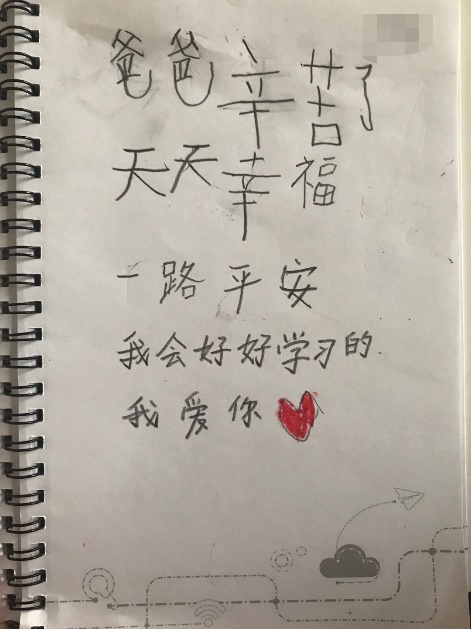 爸爸辛苦了
天天幸福
一路平安
我会好好学习的
我爱你